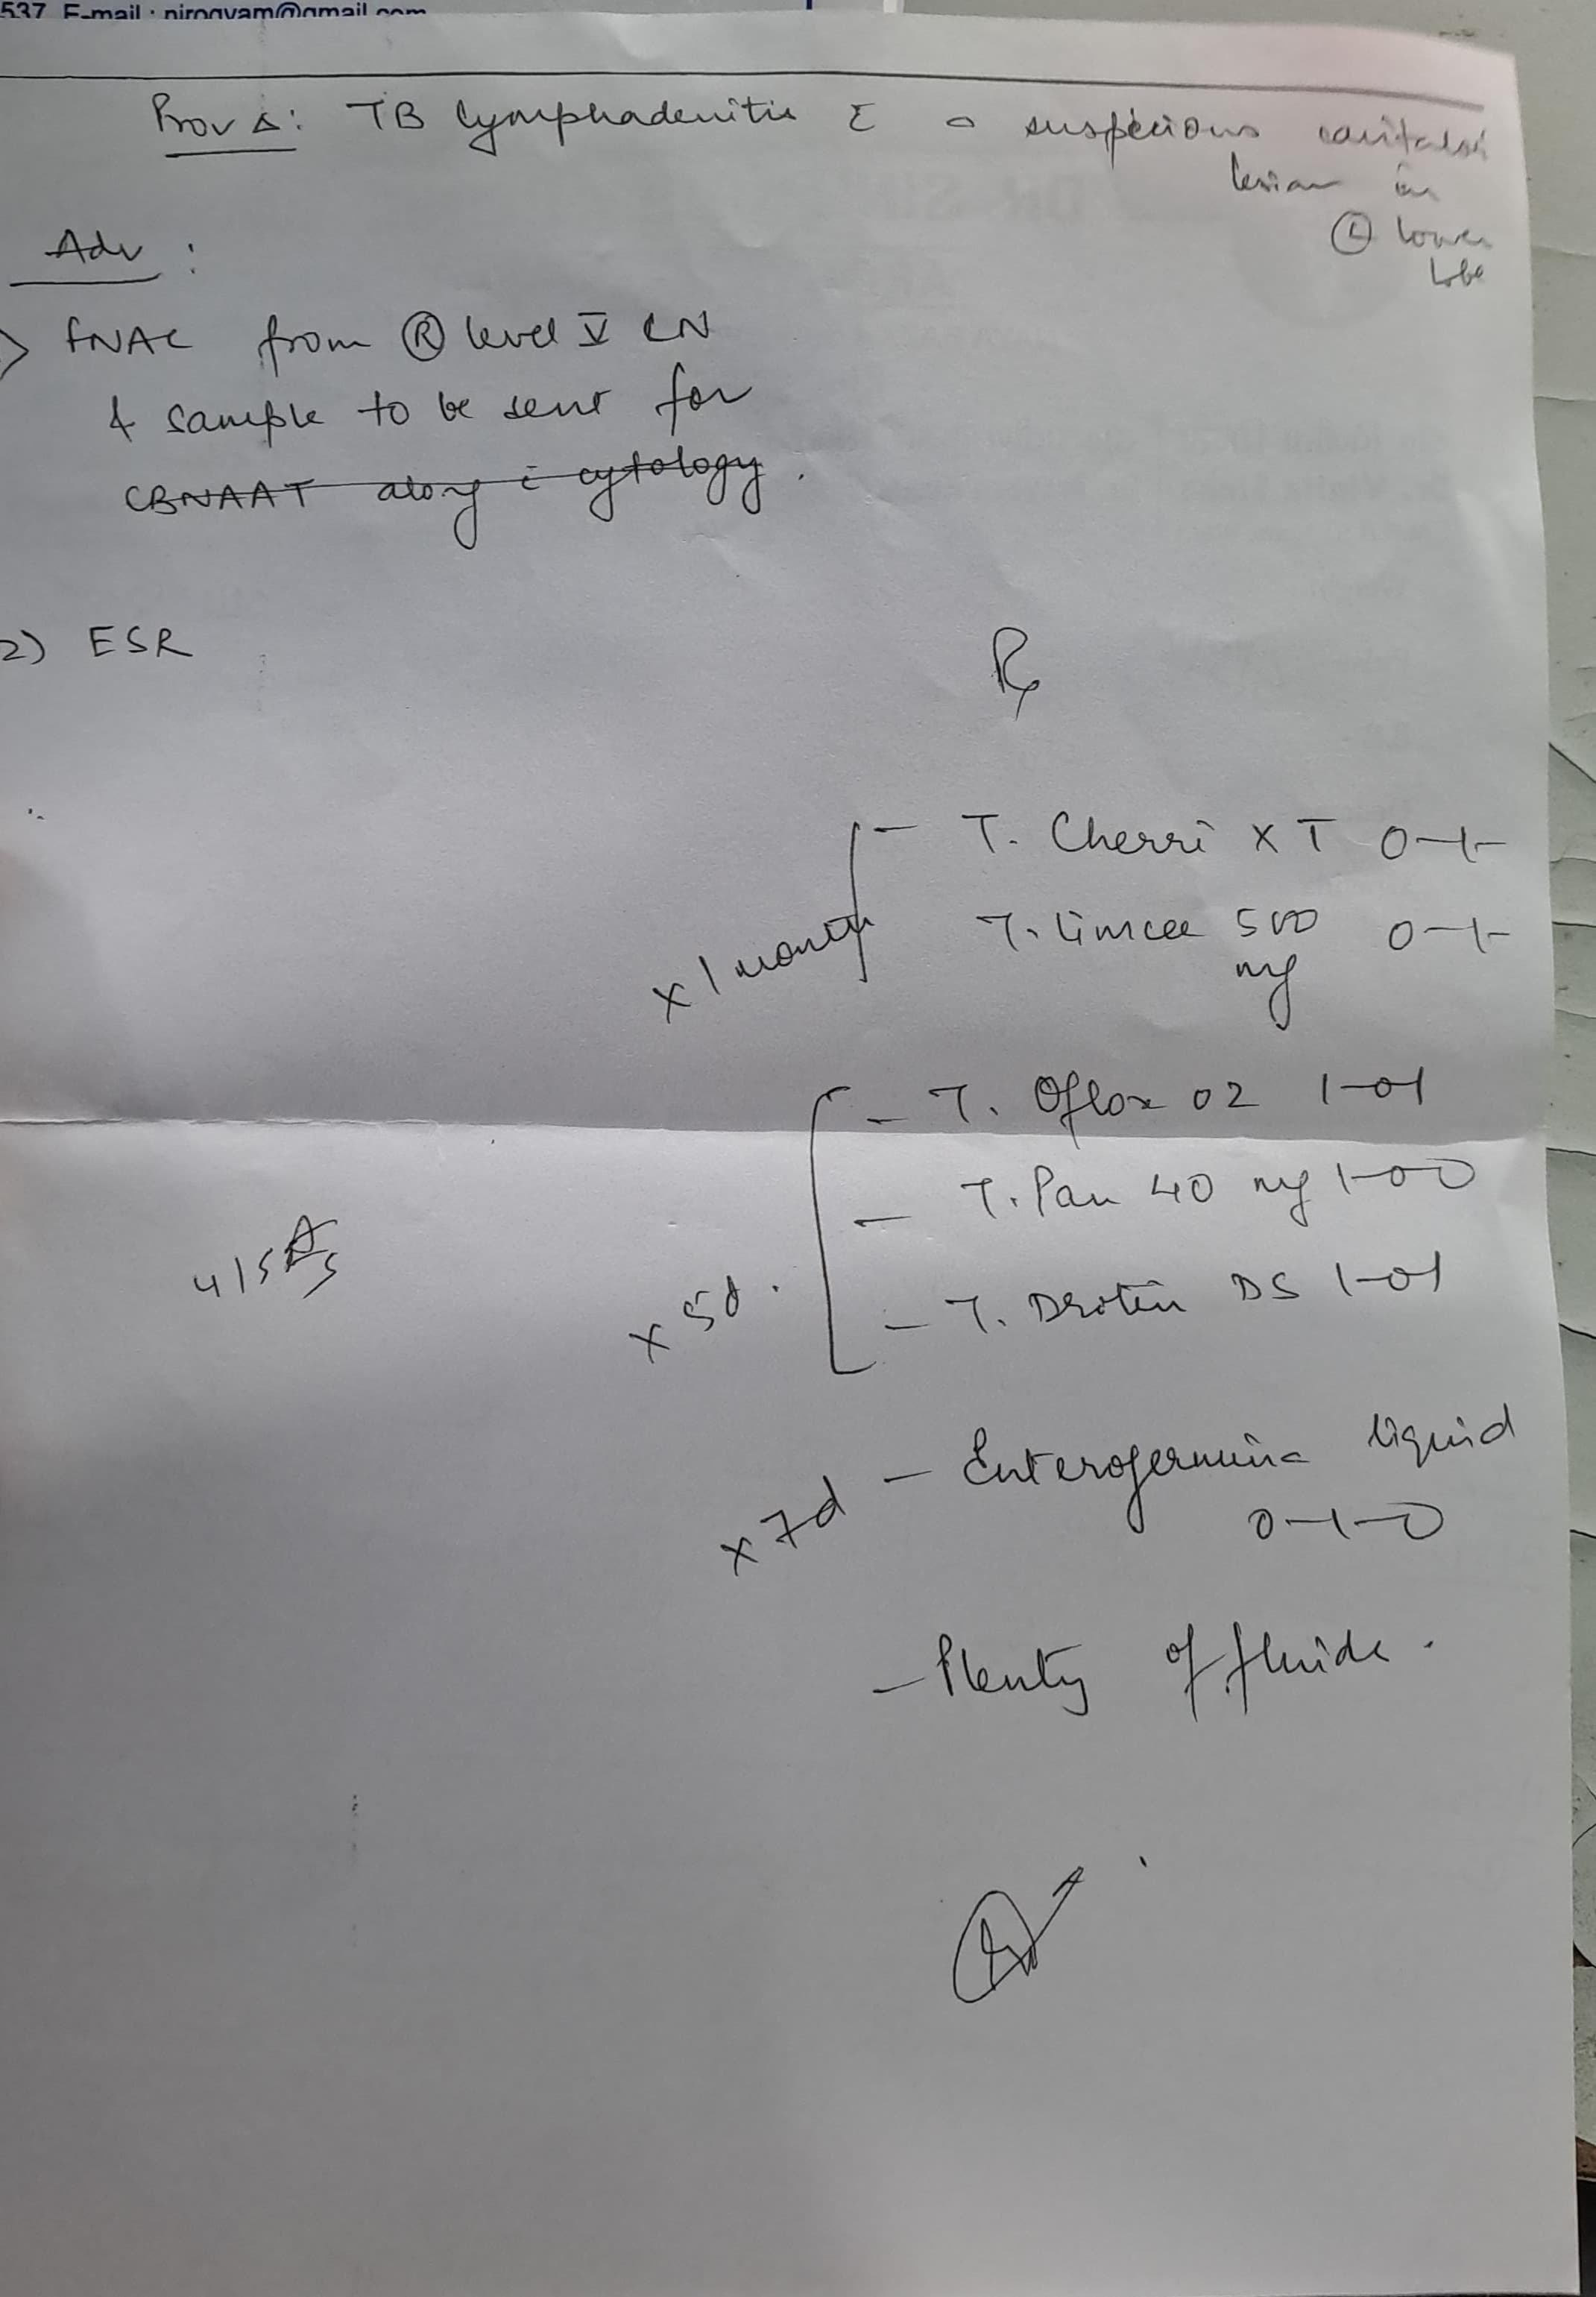 537 E-mail : nirogyam@gmail.com
Prov Δ: TB lymphadenitis c̄ a suspicious
lesion in
Ⓛ lower
lobe
Adv :
FNAC from Ⓡ level V LN
& sample to be sent for
CBNAAT along c̄ cytology.
2) ESR
Rx
- T. Cherri XT 0-1-
T. Limcee 500 0-1-
mg
x 1 month
- T. Oflox 02 1-01
- T. Pan 40 mg 1-00
- T. Drotin DS 1-01
x 5d.
- Enterogermina liquid
0-1-0
x 7d
- Plenty of fluids.